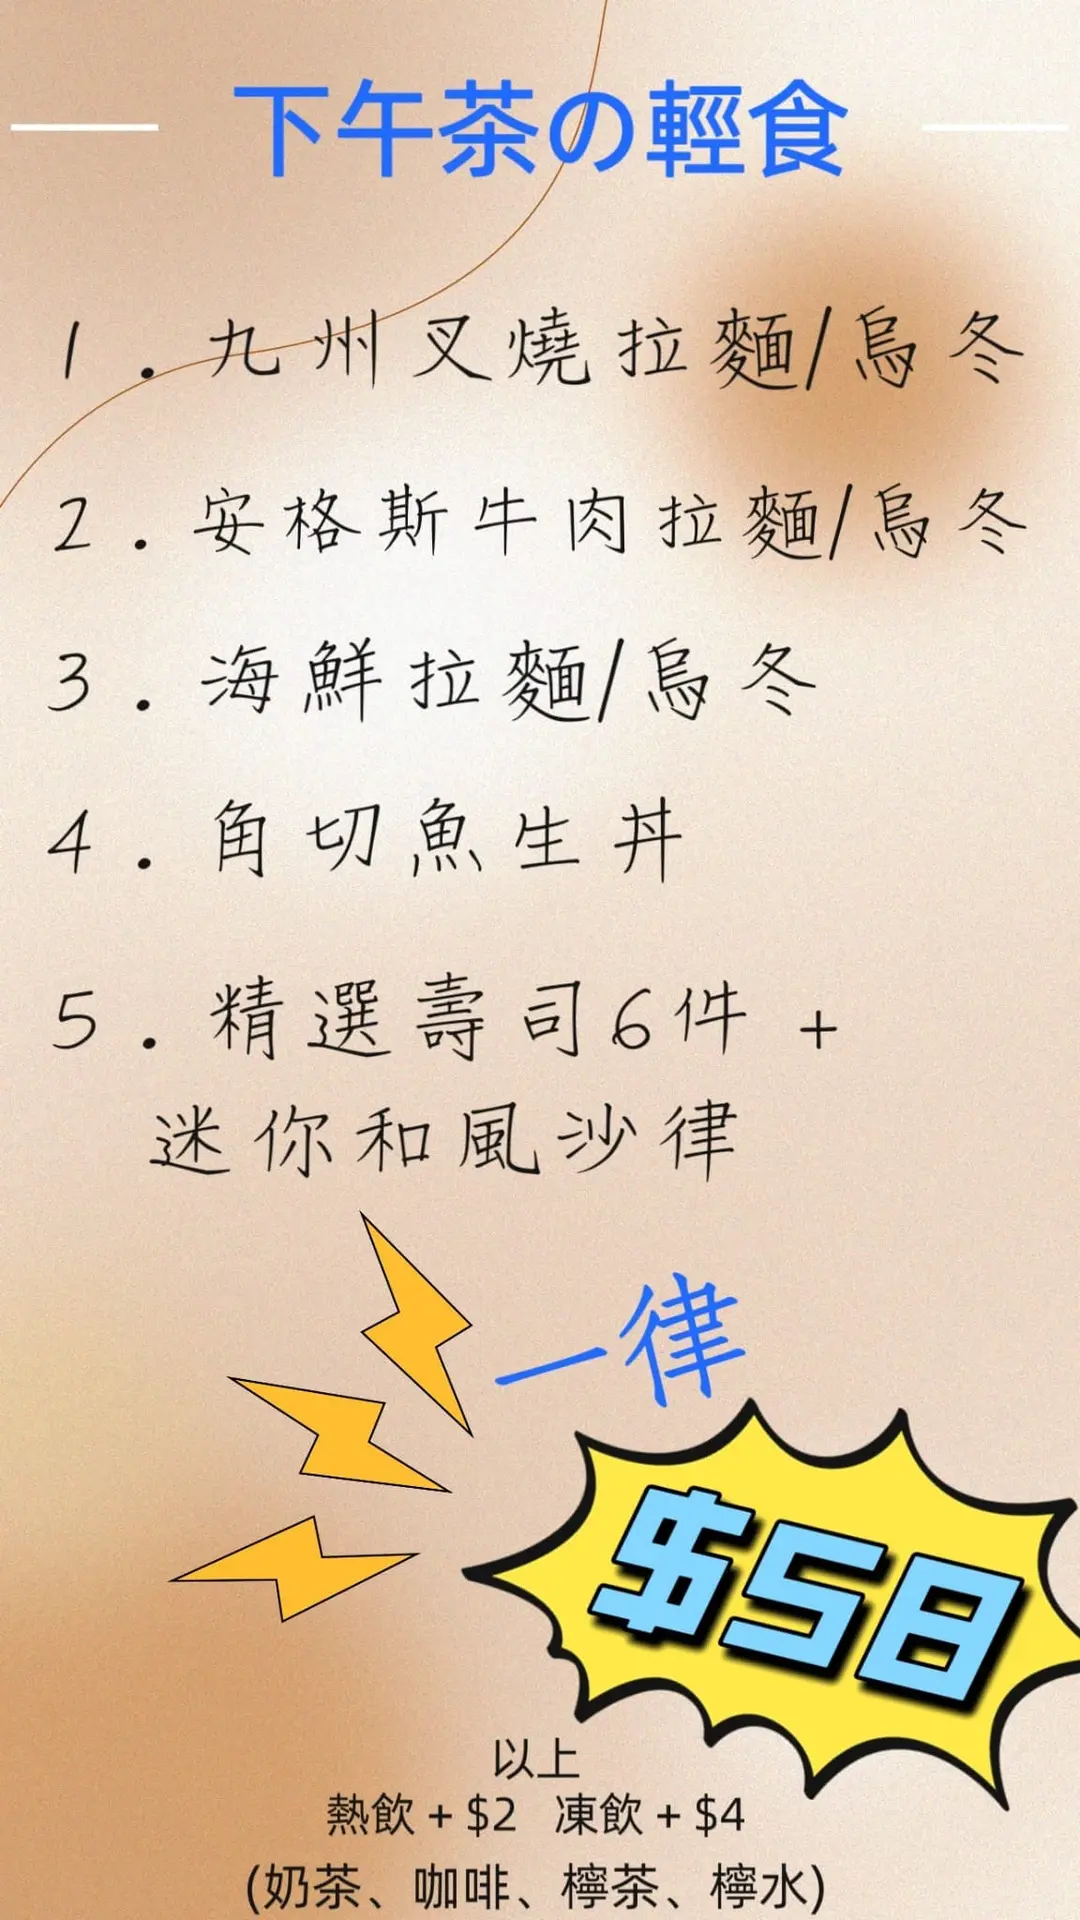 下午茶の輕食
1.九州叉燒拉麵/烏冬
2.安格斯牛肉拉麵/烏冬
3.海鮮拉麵/烏冬
4.角切魚生丼
5.精選壽司6件 +
迷你和風沙律
一律
$58
以上
熱飲 + $2 凍飲 + $4
(奶茶、咖啡、檸茶、檸水)